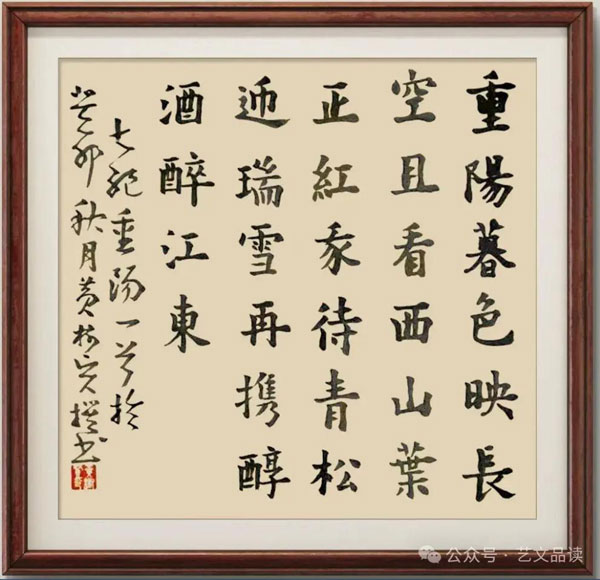 重陽暮色映長
空且看西山葉
正紅待青松
迎瑞雪再携醇
酒醉江東
七絕重陽一首於
癸卯秋月黄撰书
公众号·艺文品读